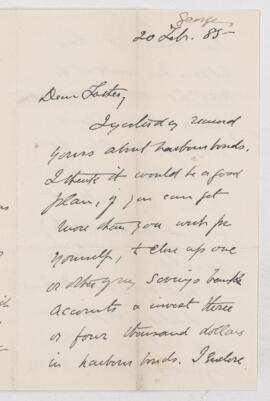 George
20 Feb. 85
Dear Father,
I yesterday received
yours about harbour bonds.
I think it would be a good
plan, if you can get
more than you want for
yourself, to close up one
or other of my savings bank
accounts & invest three
or four thousand dollars
in harbour bonds. I enclose